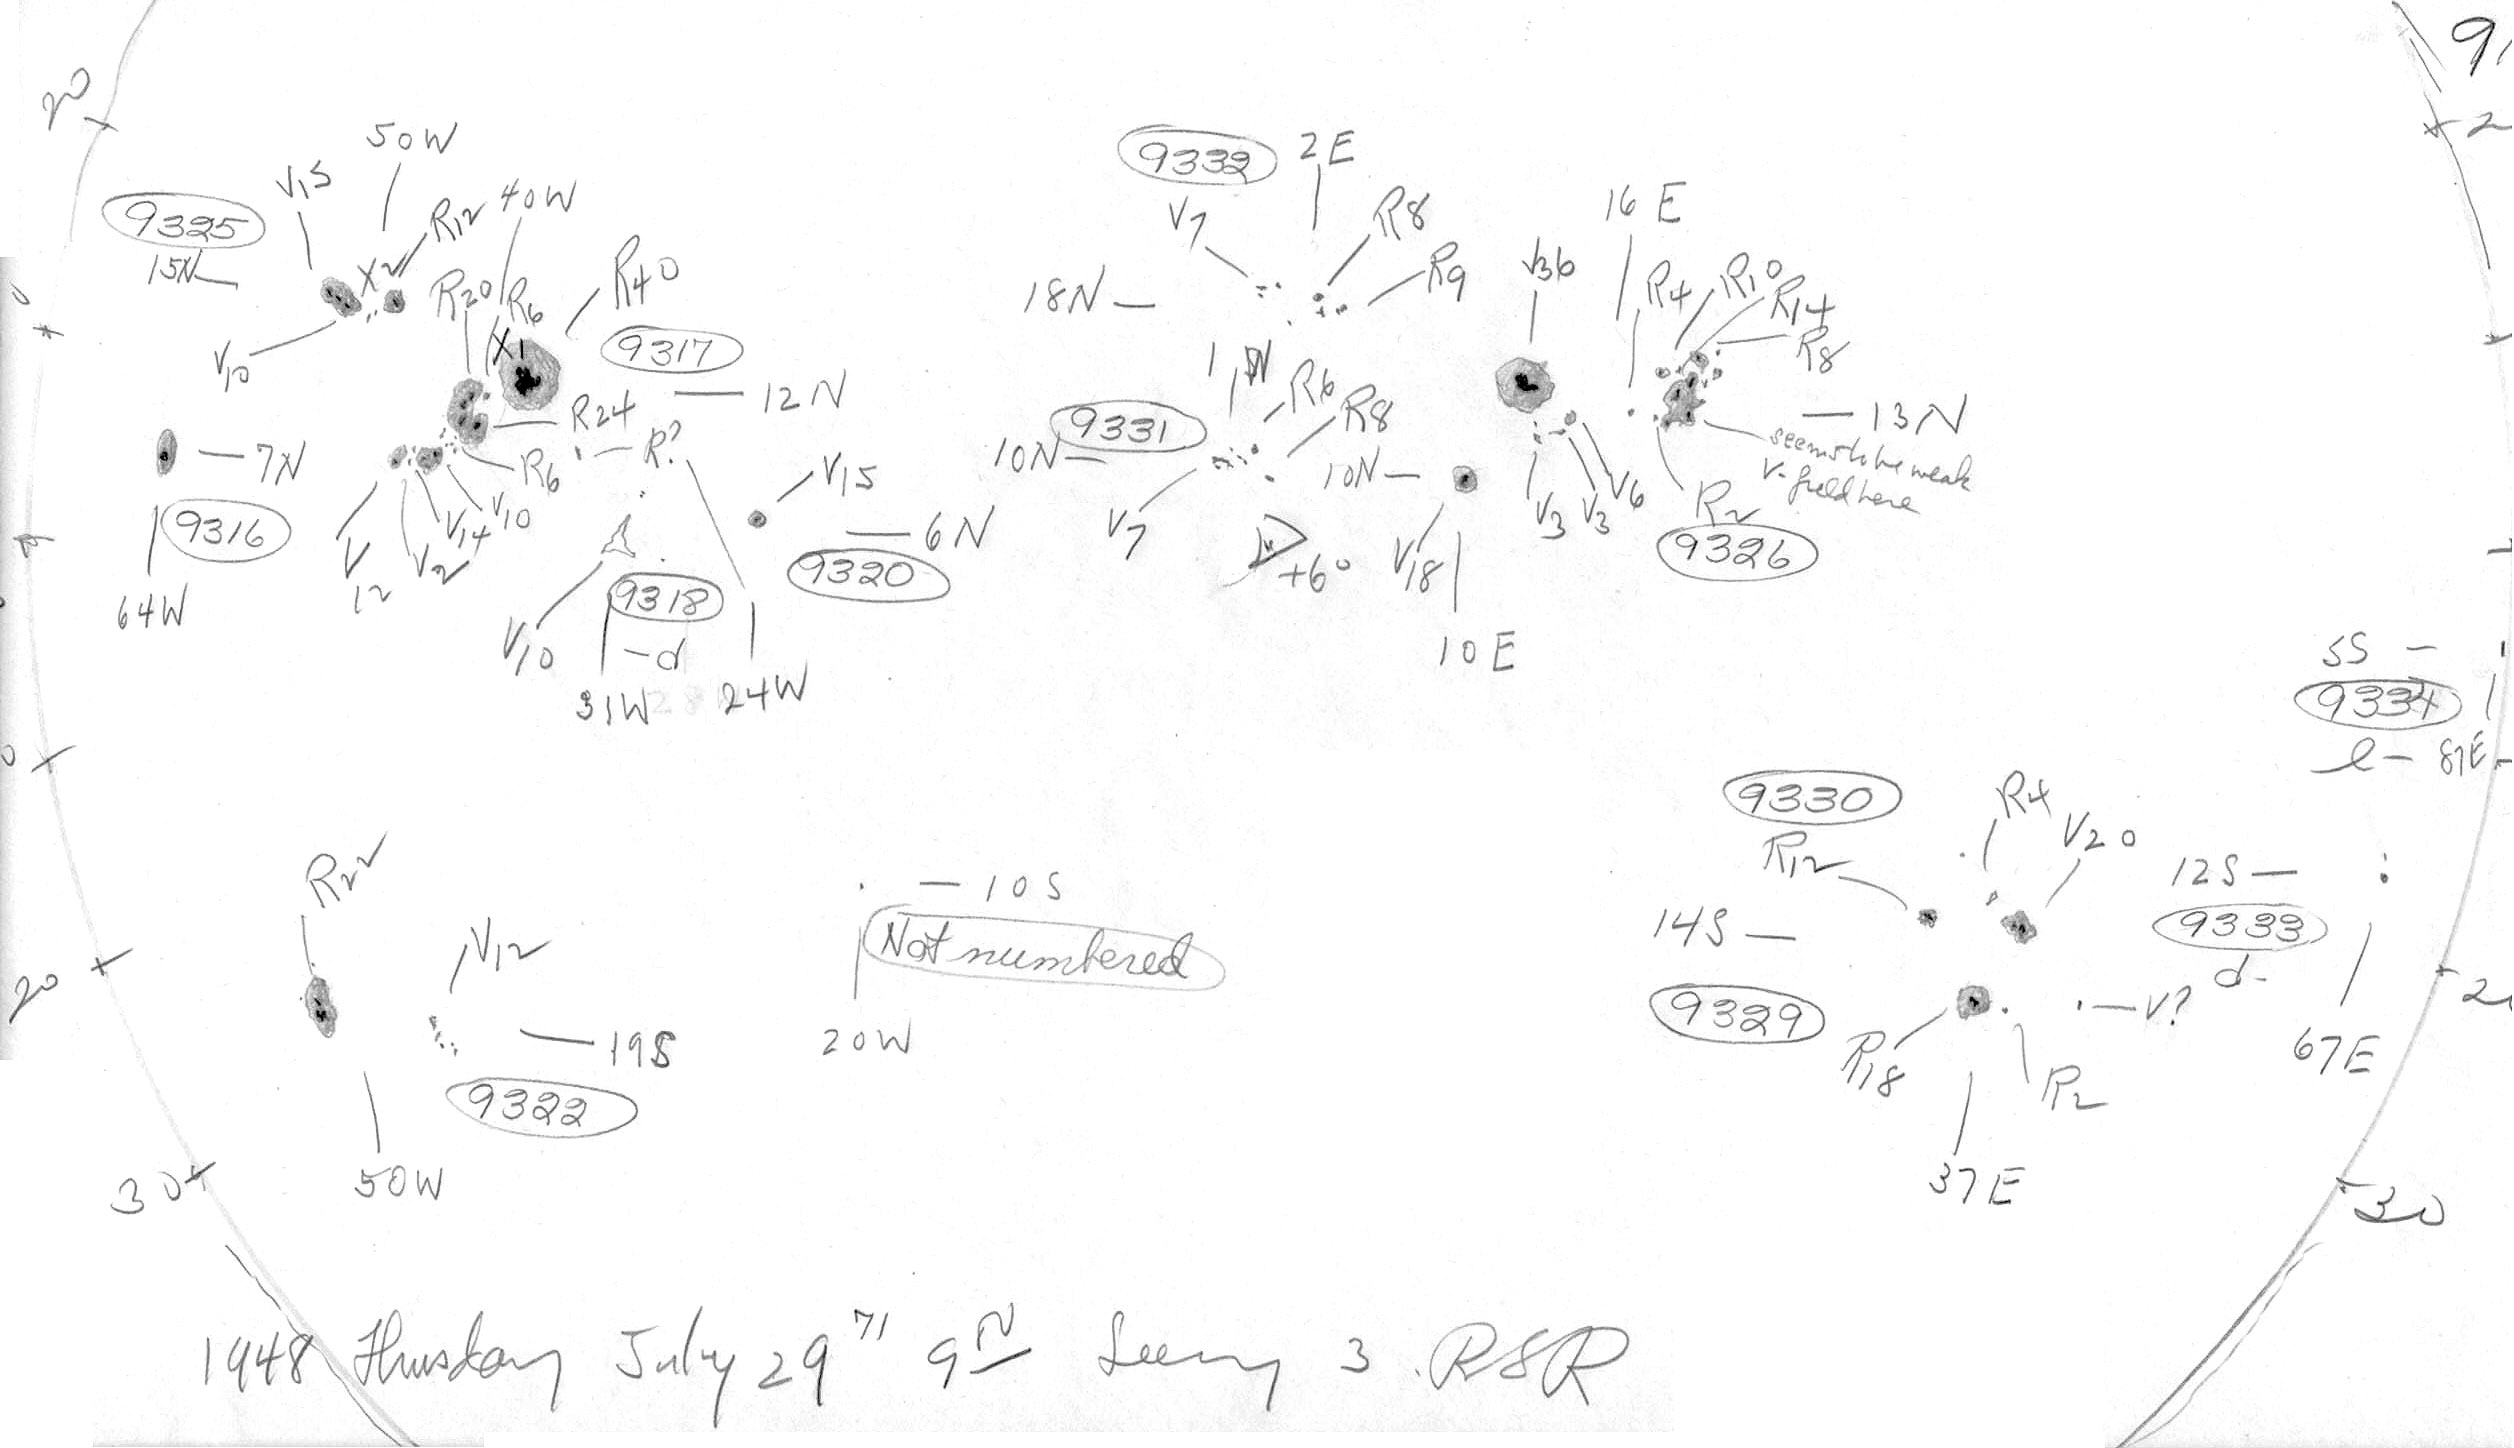 20
9
2
50W
V15
9325
R12
40W
15N
X2
R20
R6
R40
V10
X1
9317
12N
R24
7N
R6
R?
V15
9316
V12
V2
V14
V10
6N
9320
64W
9318
V10
-d
31W
24W
9332
2E
V7
R8
R9
18N
V36
16E
R4
R10
R14
R8
R6
R8
9331
10N
10N
13N
seems to be weak
V-field here
V7
+6°
V18
V3
V3
V6
R2
9326
10E
5S
9334
l- 87E
0
9330
R4
R12
V20
12S
14S
9333
d-
R22
V12
10S
Not numbered
20
20W
19S
9322
9329
V?
R18
R2
67E
37E
50W
30
30
1948 Thursday July 29 71 9 Seeing 3 RSR